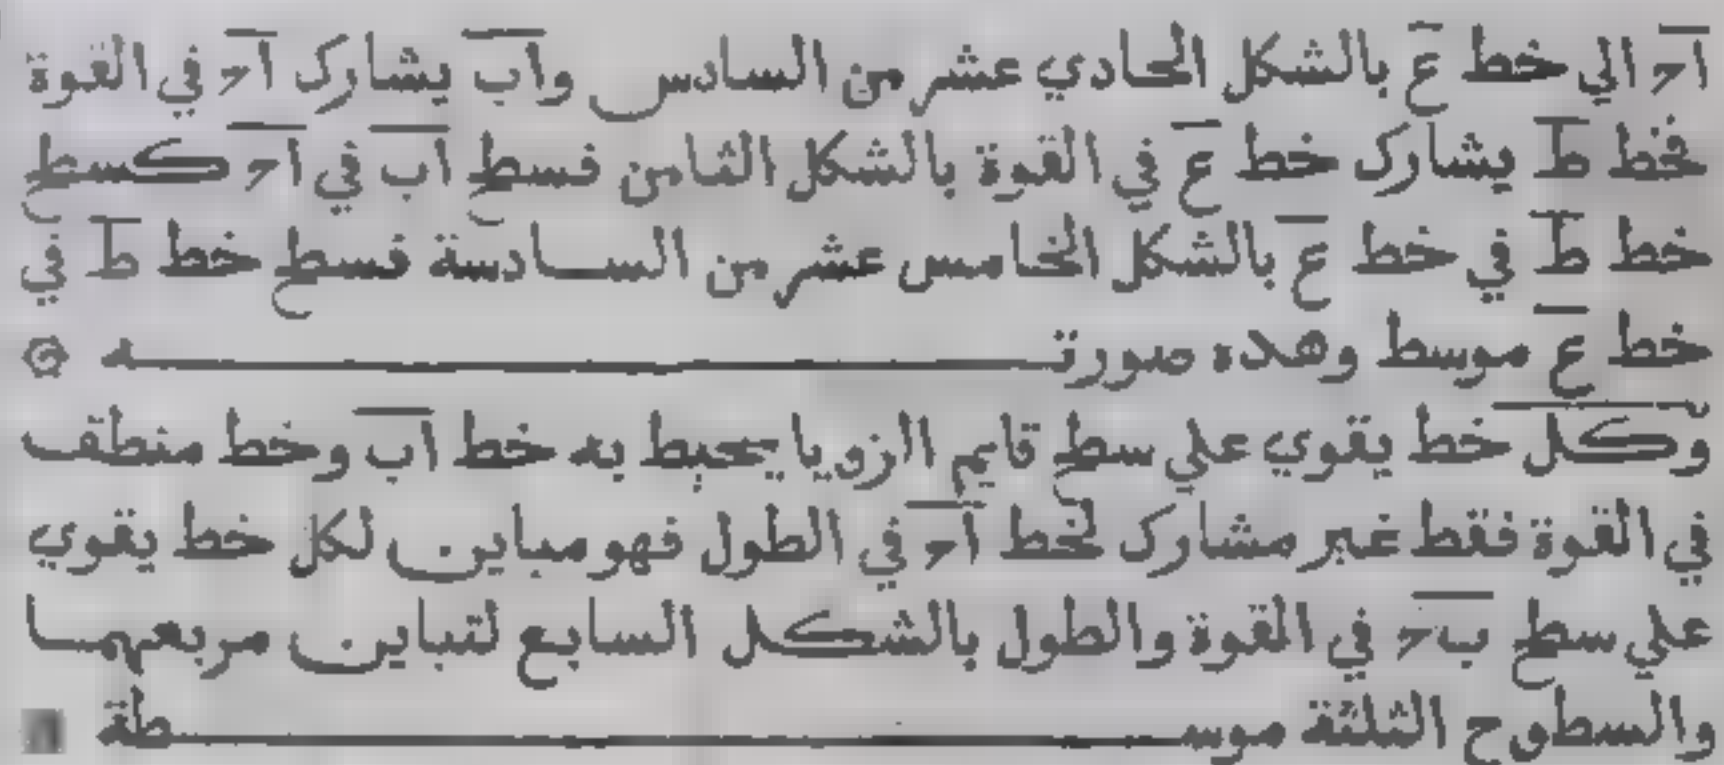 اح الي خط ع بالشكل الحادي عشر من السادس واب يشارك اح في القوة
فخط ط يشارك خط ع في القوة بالشكل الثامن فسطح اب في اح كسطح
خط ط في خط ع بالشكل الخامس عشر من السادسة فسطح خط ط في
خط ع موسط وهذه صورته
وكل خط يقوي علي سطح قايم الزويا يحيط به خط اب وخط منطق
في القوة فقط غير مشارك لخط اح في الطول فهو مباين لكل خط يقوي
علي سطح ب ح في القوة والطول بالشكل السابع لتباين مربعهما
والسطوح الثلثة موسطة